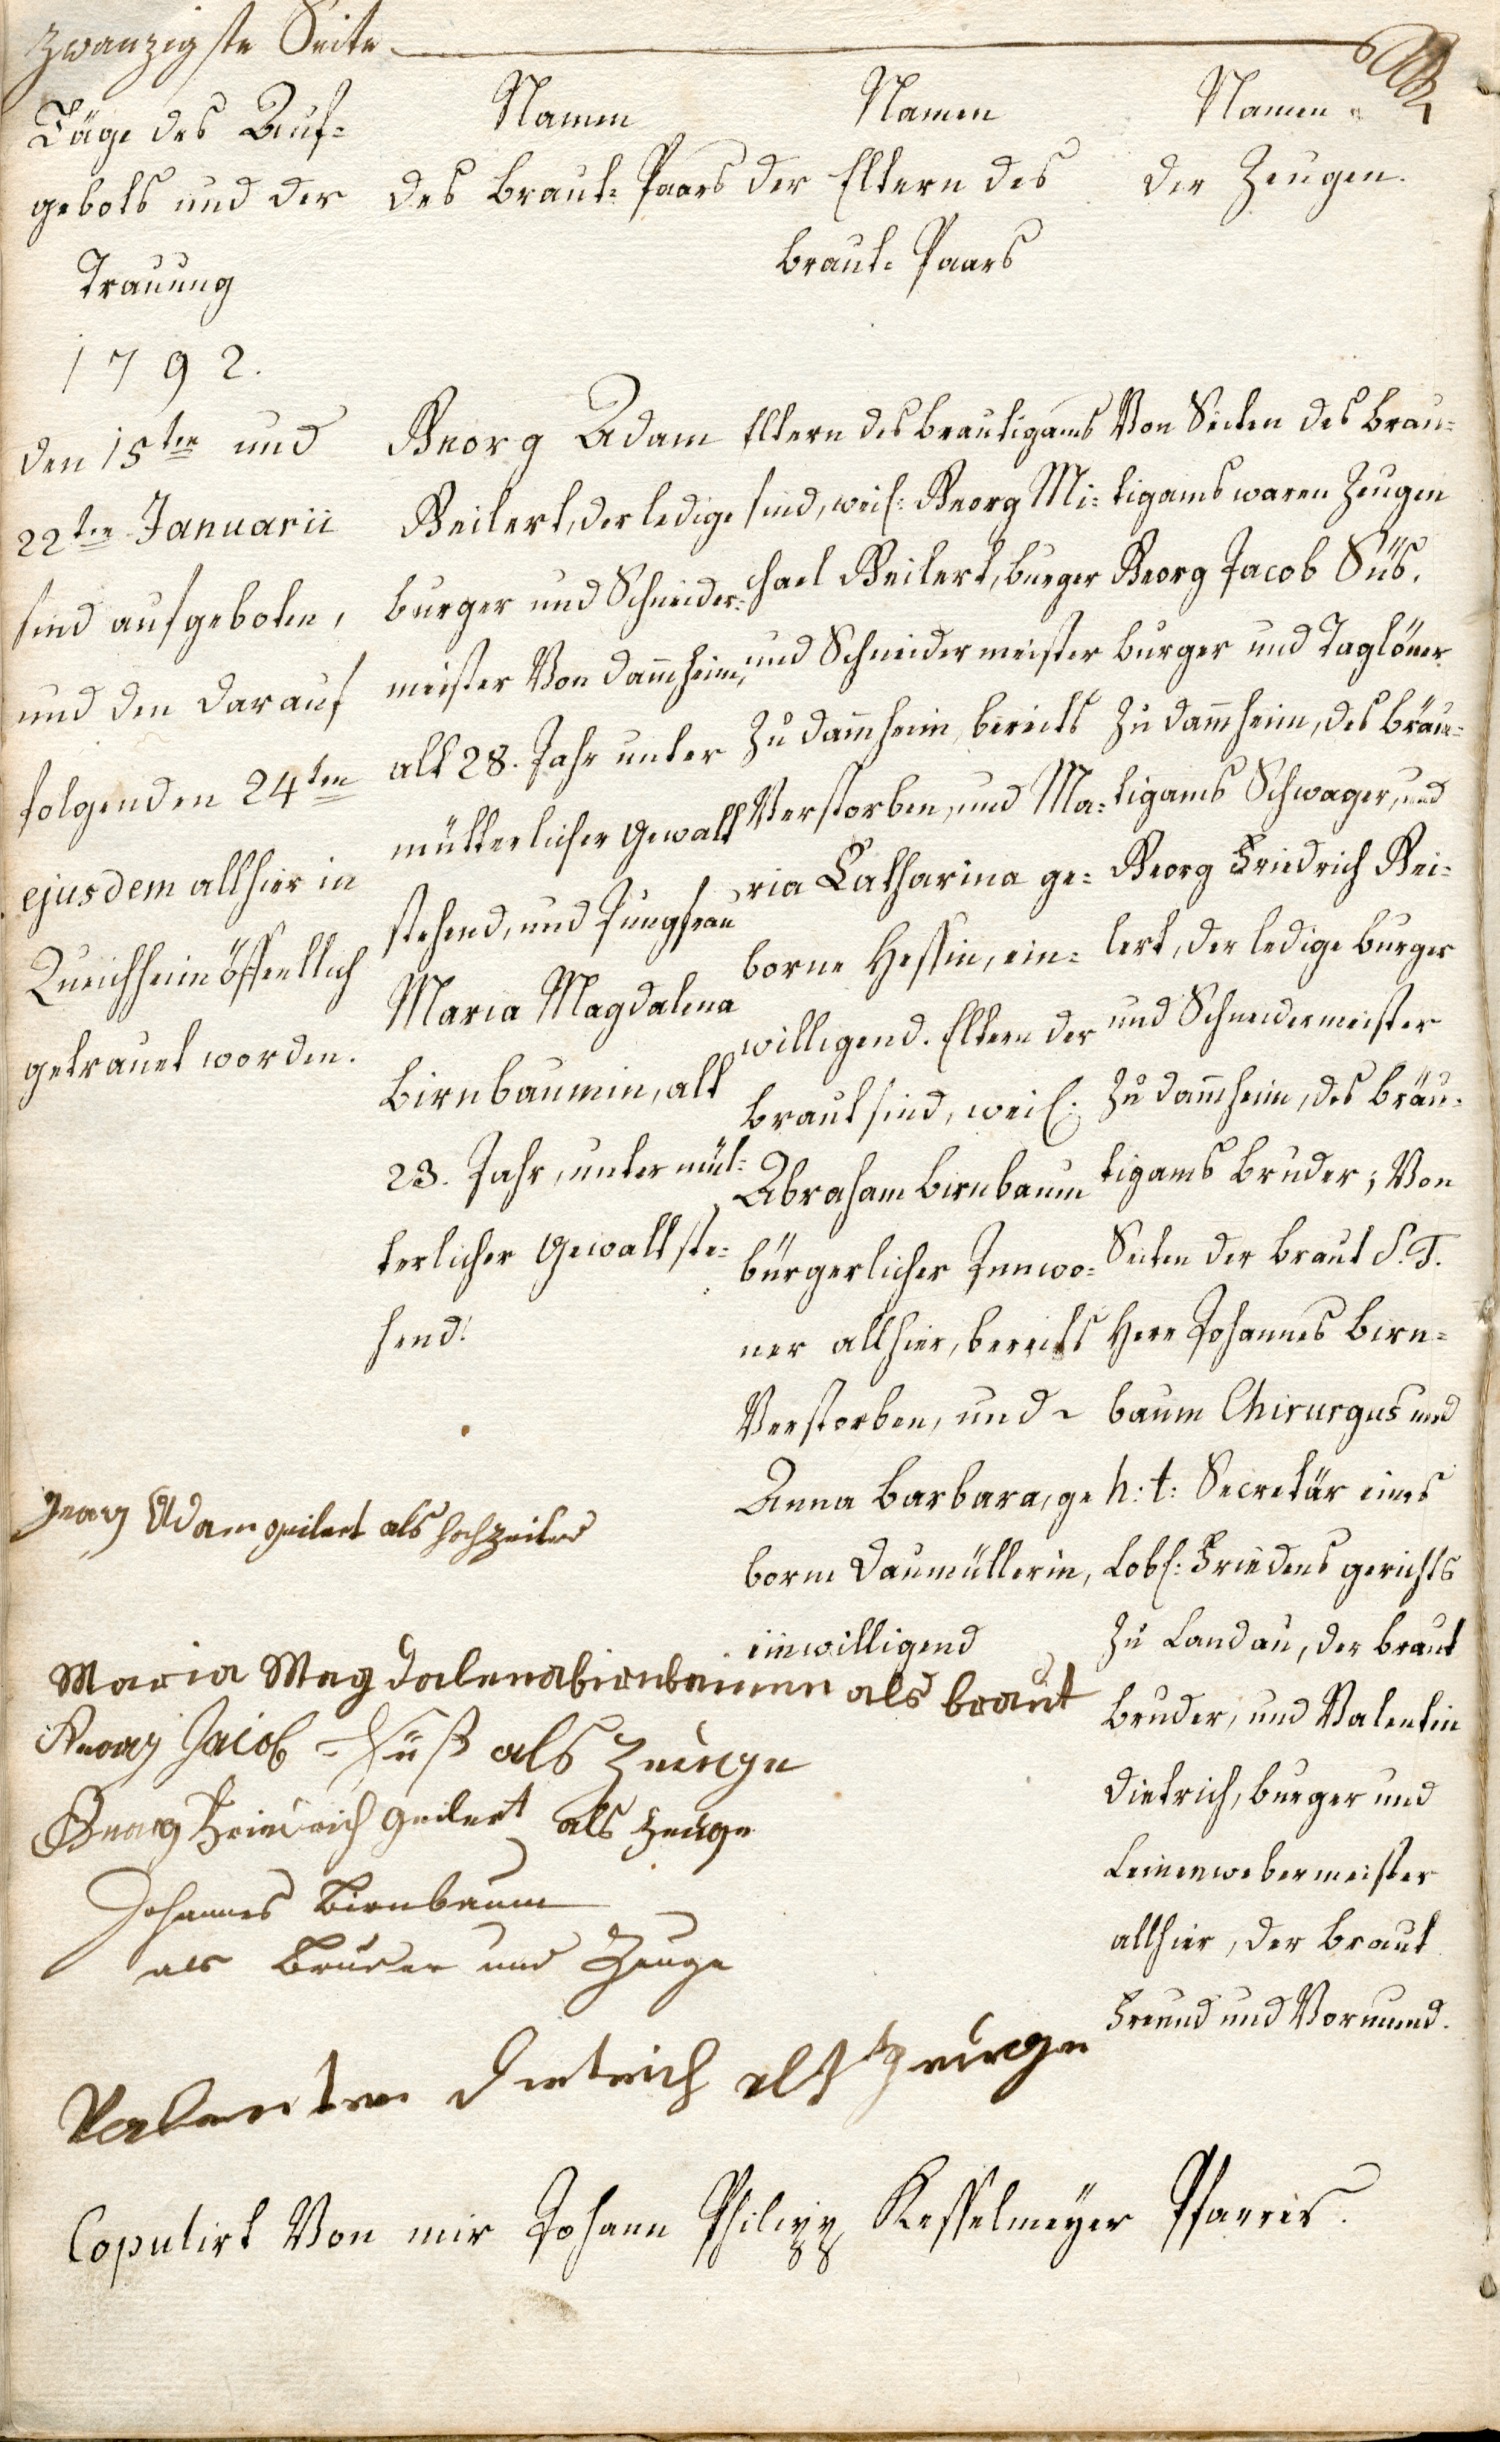 Zwanzigste Seite
Täge des Auf=
gebots und der
Trauung
1792.
den 15ten und
22ten Januarii
sind aufgeboten,
und den darauf
folgenden 24ten
ejusdem allhier in
Queichheim öffentlich
getrauet worden.
Namen
des Braut= Paars
Georg Adam
Geilert, der ledige
burger und Schneider=
meister Von dam̄heim,
alt 28. Jahr unter
mütterlicher Gewalt
stehend, und Jungfrau
Maria Magdalena
Birnbaumin, alt
23. Jahr, unter müt=
terlicher Gewalt ste=
hend.
Namen
der Eltern des
Braut= Paars
Eltern des Bräutigams
sind, weil: Georg Mi=
chael Geilert, burger
und Schneidermeister
Zu dam̄heim, bereits
Verstorben, und Ma=
ria Catharina ge=
borne Hessin, ein=
willigend. Eltern der
Braut sind, weil:
Abraham Birnbaum
bürgerlicher Innwo=
ner allhier, bereits
Verstorben, und
Anna Barbara, ge
borne Daumüllerin,
einwilligend
Namen
der Zeugen.
Von Seiten des Bräu=
tigams waren Zeugen
Georg Jacob Süß,
burger und Taglöner
Zu dam̄heim, des Bräu=
tigams Schwager, und
Georg Friedrich Gei=
lert, der ledige burger
und Schneidermeister
Zu dam̄heim, des Bräu=
tigams Bruder; Von
Seiten der Braut S. T.
Herr Johannes Birn=
baum Chirurgus und
h: t: Secretär eines
Löbl: Friedens gerichts
Zu Landau, der Braut
Bruder, und Valentin
Dietrich, burger und
Leinenwebermeister
allhier, der Braut
Freund und Vormund.
Georg Adam geilert als hochzeiter
Maria Magdalena birnbaumin als braut
Georg Jacob Süß als Zeuge
Georg Friedrich geilert als zeuge
Johannes Birnbaum
als Bruder und Zeuge
Valentin Dietrich als Zeuge
Copulirt Von mir Johann Philipp Kesselmeyer Pfarrer.